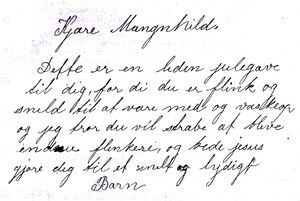 Kjære Mangnhild.
Dette er en liden julegave
til dig, for di du er flink og
snild til at være med og vaske op
og jeg tror du vil strabe at blive
endnu flinkere, og bede jesus
gjøre dig til et snilt og lydigt
Barn